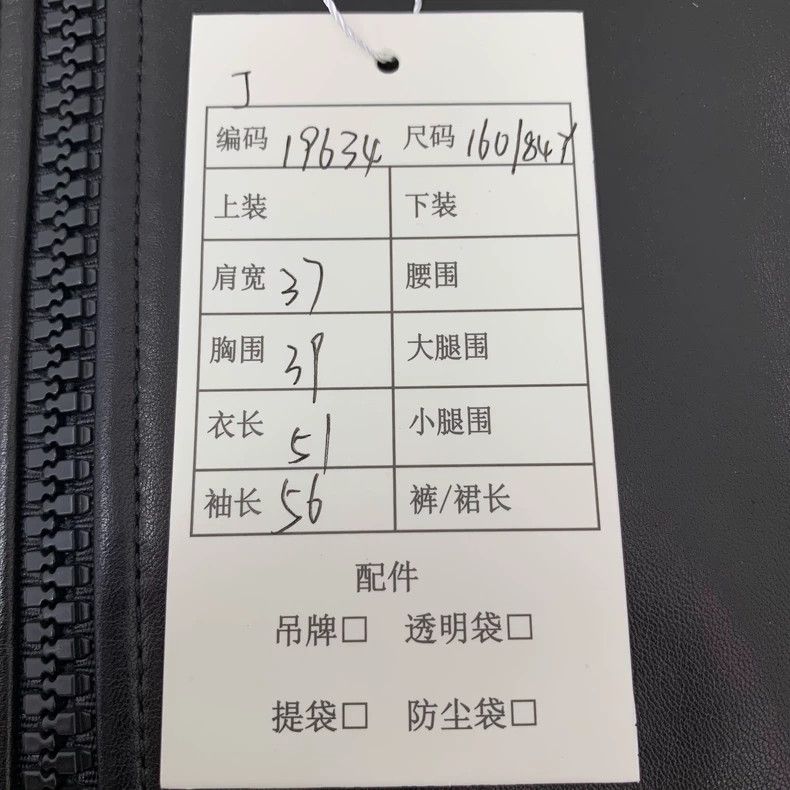 J
编码 19634 尺码 160/84Y
上装 下装
肩宽 37 腰围
胸围 39 大腿围
衣长 51 小腿围
袖长 56 裤/裙长
配件
吊牌□ 透明袋□
提袋□ 防尘袋□